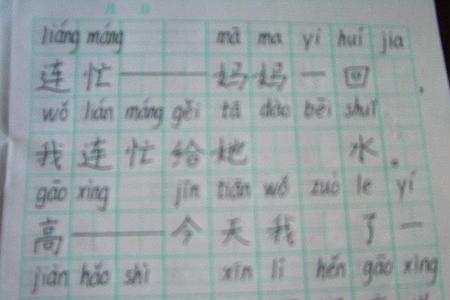 liáng máng mā ma yí huí jia
连忙——妈妈一回
wǒ lián máng gěi tā dào bēi shuǐ
我连忙给她 水。
gāo xìng jīn tiān wǒ zuò le yí
高——今天我 了一
jiàn hǎo shì xīn lǐ hěn gāo xìng